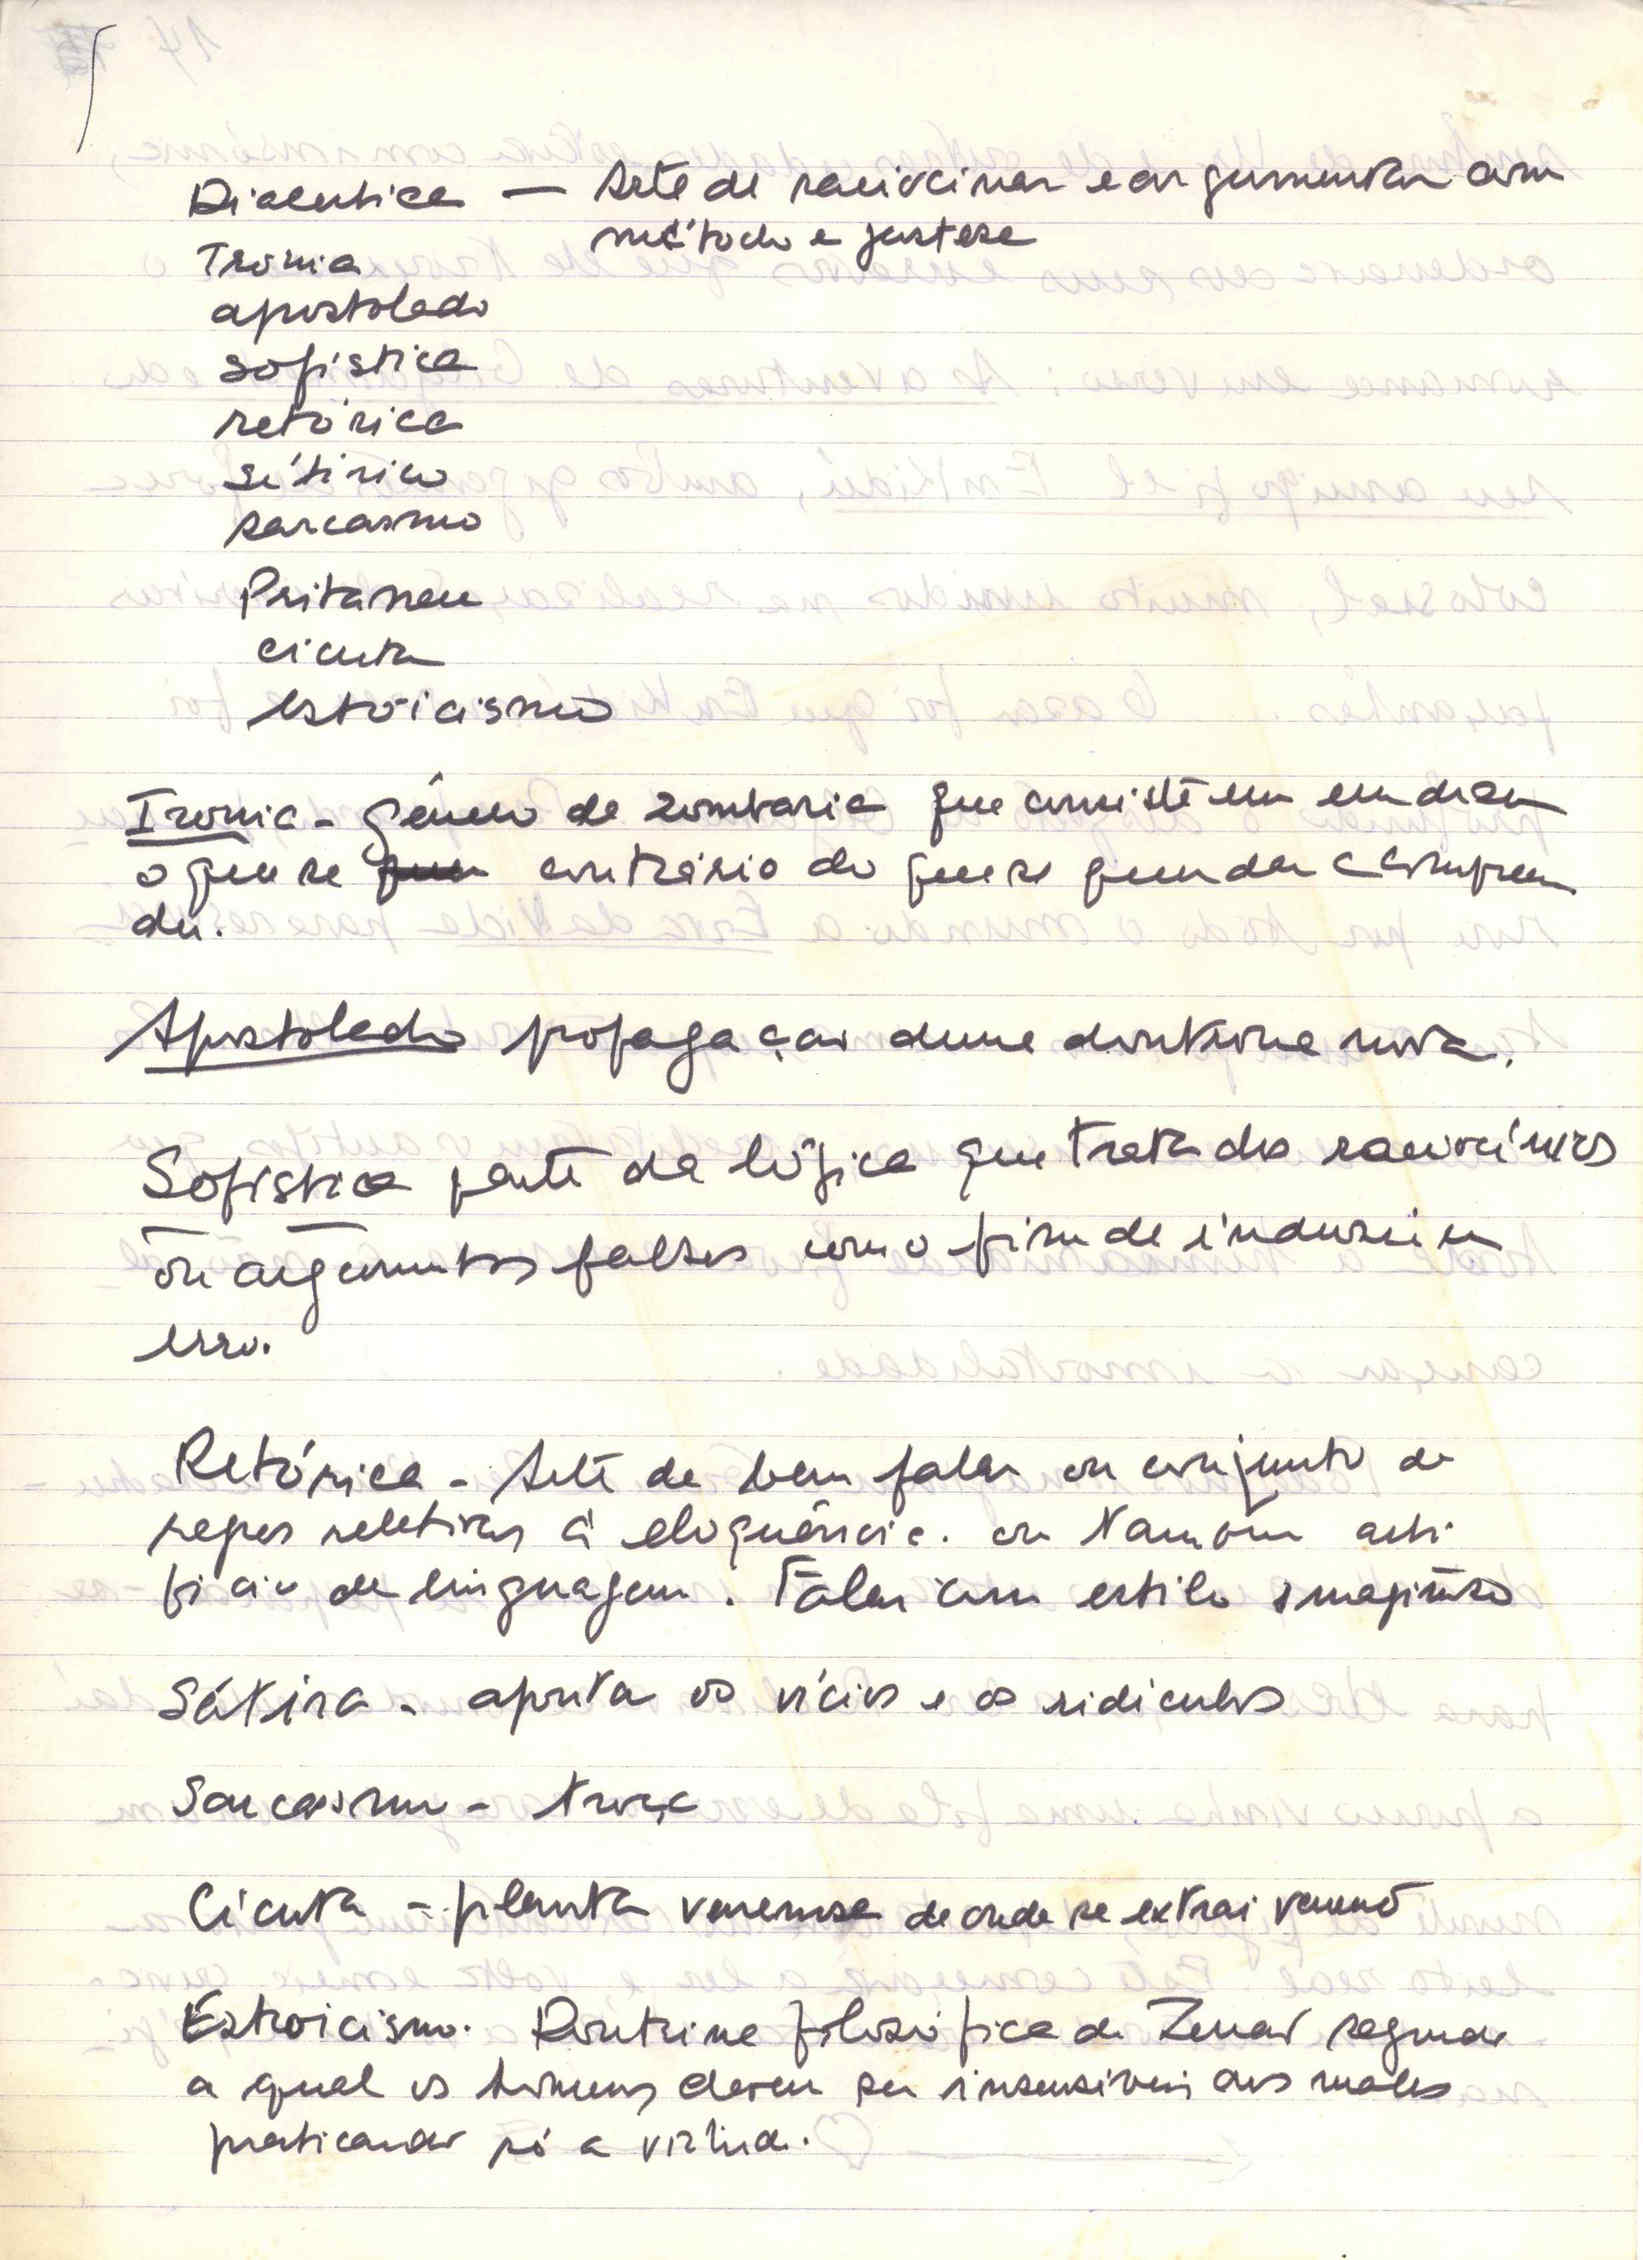 Dialentica — Arte de raciocinar e argumentar com
método e justeza
Ironia
apostolado
sofistica
retórica
sátirico
sarcasmo
Pritaneu
cicuta
estoicismo
Ironia - género de zombaria que consiste em em dizer
o que se contrário do que se quer dar a compreen
der.
Apostolado propagação duma doutrina nova.
Sofistica parte da lógica que trata dos raciocínios
ou argumentos falsos com o fim de induzir em
erro.
Retórica - Arte de bem falar ou conjunto de
regras relativas á eloquência. ou também arti-
ficio de linguagem. Falar com estilo
Sátira - aponta os vícios e os ridiculos
Sarcasmo - troça
Cicuta - planta venenosa de onde se extrai veneno
Estoicismo. Doutrina filosófica de Zenão segundo
a qual os homens devem ser insensiveis aos males
praticando só a virtude.